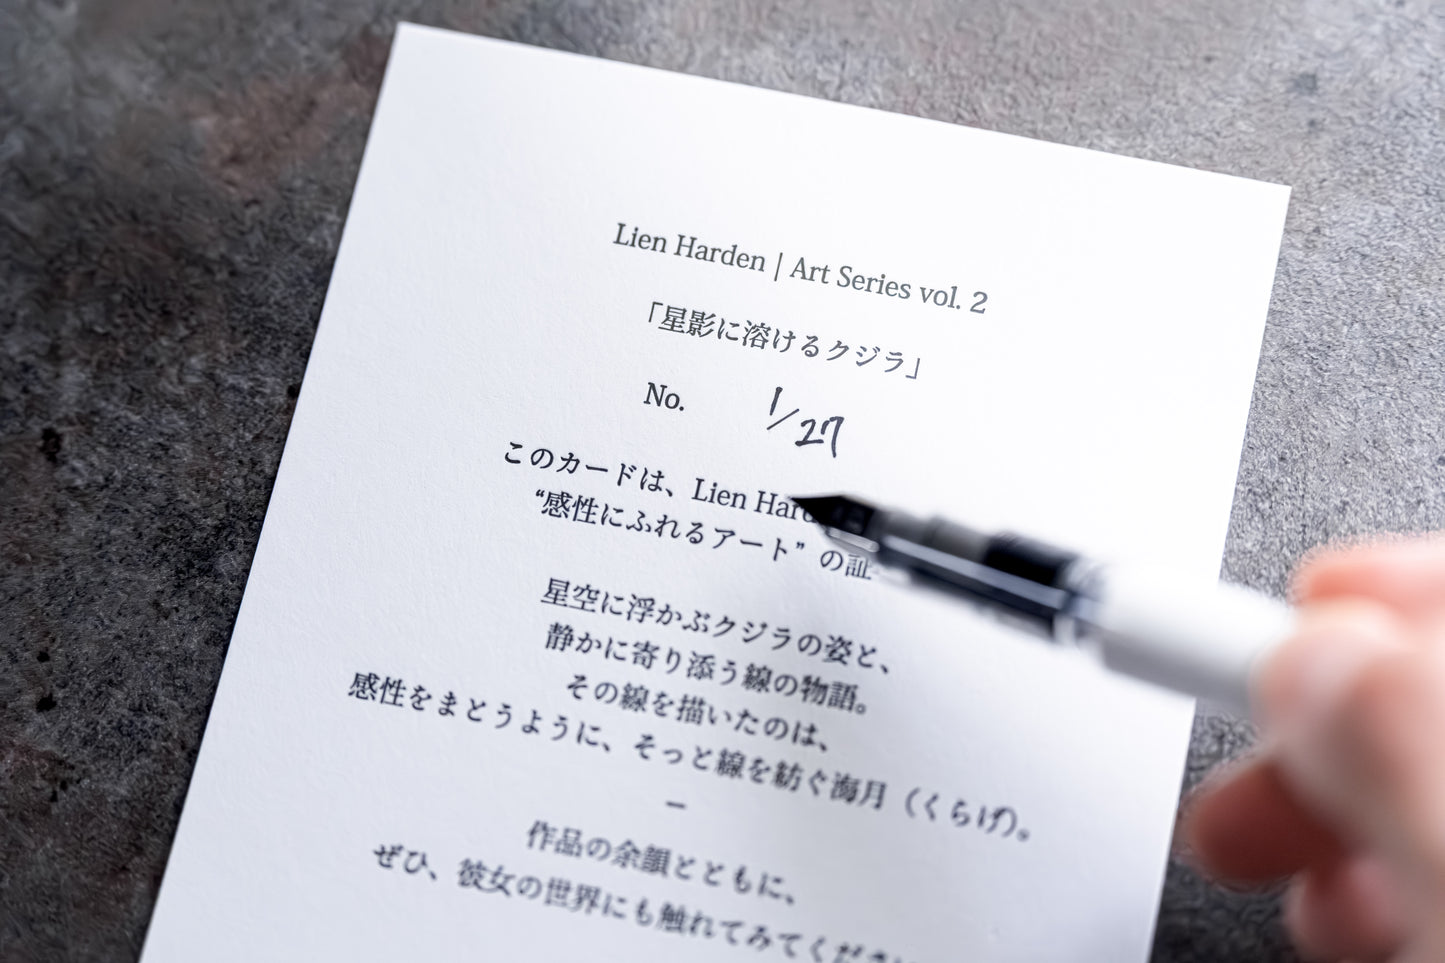 Lien Harden | Art Series vol. 2
「星影に溶けるクジラ」
No. 1/27
このカードは、Lien Har
“感性にふれるアート” の証
星空に浮かぶクジラの姿と、
静かに寄り添う線の物語。
その線を描いたのは、
感性をまとうように、そっと線を紡ぐ海月（くらげ）。
ー
作品の余韻とともに、
ぜひ、彼女の世界にも触れてみてくださ